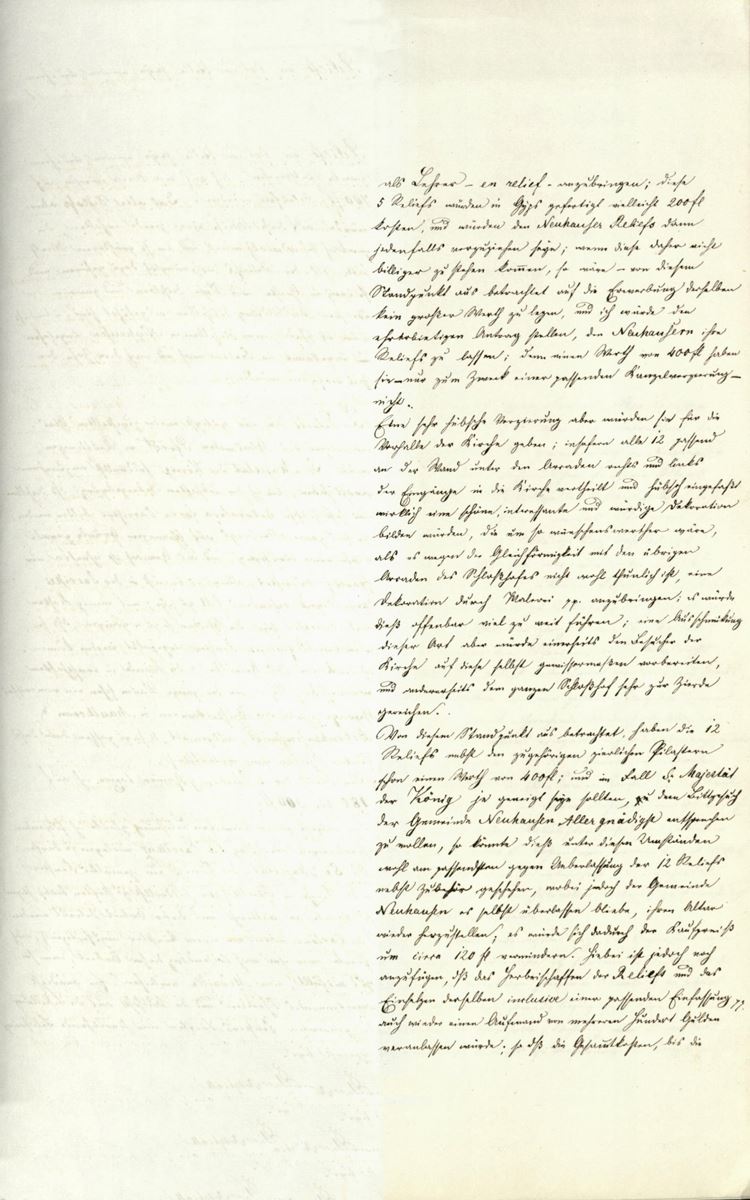 als Lehrer – en relief – anzubringen; diese
5 Reliefs würden in Gyps gefertigt vielleicht 200 fl
kosten, und würden den Neuhauser Reliefs dann
jedenfalls vorzuziehen seyn; wenn diese daher nicht
billiger zu stehen kommen, so wäre – von diesem
Standpunkt aus betrachtet auf die Erwerbung derselben
kein großer Werth zu legen, und ich würde den
ehrerbietigen Antrag stellen, den Neuhausern ihre
Reliefs zu lassen; denn einen Werth von 400 fl haben
sie – nur zum Zweck einer passenden Kanzelverzierung –
nicht.
Eine sehr hübsche Verzierung aber würden sie für die
Vorhalle der Kirche geben; insofern alle 12 passend
an der Wand unter den Arcaden rechts und links
der Eingänge in die Kirche vertheilt und hübsch eingefaßt
wirklich eine schöne, interessante und würdige Dekoration
bilden würden, die um so wünschenswerther wäre,
als es wegen der Gleichförmigkeit mit den übrigen
Arcaden des Schloßhofes nicht wohl thunlich ist, eine
Dekoration durch Malerei pp. anzubringen; es würde
dieß offenbar viel zu weit führen; eine Ausschmückung
dieser Art aber würde einerseits den Besucher der
Kirche auf diese selbst gewissermaßen vorbereiten,
und andererseits dem ganzen Schloßhof sehr zur Zierde
gereichen.
Von diesem Standpunkt aus betrachtet, haben die 12
Reliefs nebst den zugehörigen zierlichen Pilastern
schon einen Werth von 400 fl; und im Fall S. Majestät
der König je geneigt seyn sollten, zu dem Bittgesuch
der Gemeinde Neuhausen Allergnädigst entsprechen
zu wollen, so könnte dieß unter diesen Umständen
wohl am passendsten gegen Ueberlassung der 12 Reliefs
nebst Zubehör geschehen, wobei jedoch der Gemeinde
Neuhausen es selbst überlassen bliebe, ihren Altar
wieder herzustellen; es würde sich dadurch der Kaufpreiß
um circa 120 fl vermindern. Hiebei ist jedoch noch
anzufügen, dß das Herbeischaffen der Reliefs und das
Einsetzen derselben inclusive einer passenden Einfassung pp.
auch wieder einen Aufwand von mehreren Hundert Gulden
veranlassen würde; so dß die Gesammtkosten, bis die